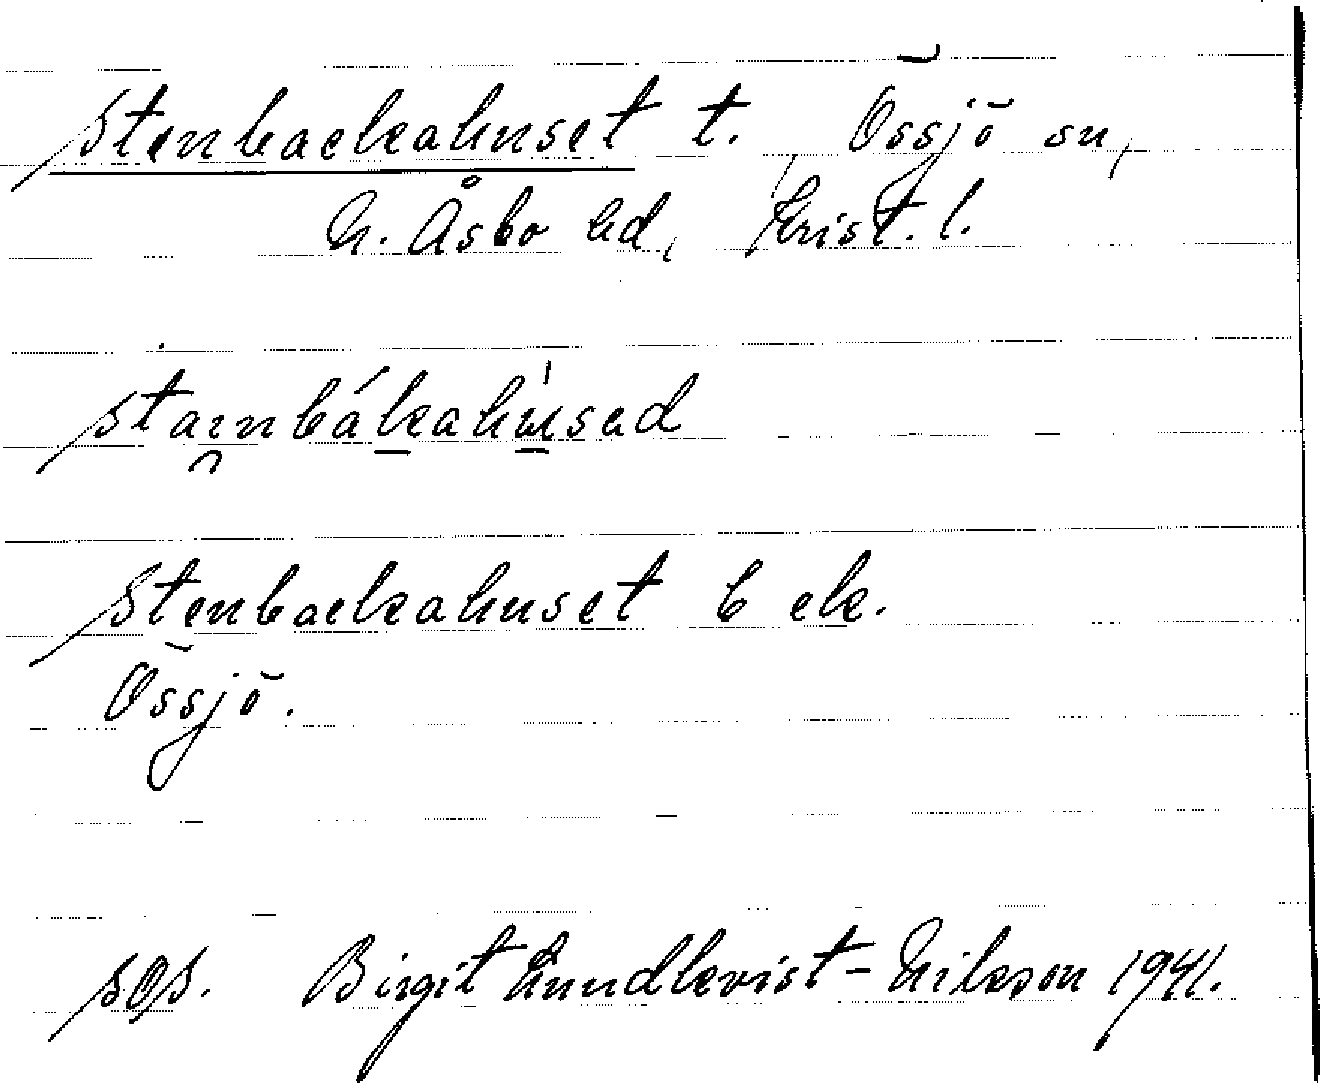 Stenbackahuset t. Össjö sn,
N. Åsbo hd, Krist. l.
stainbákahùsed
Stenbackahuset b ek.
Össjö.
SOS. Birgit Lundkvist-Nilsson 1941.